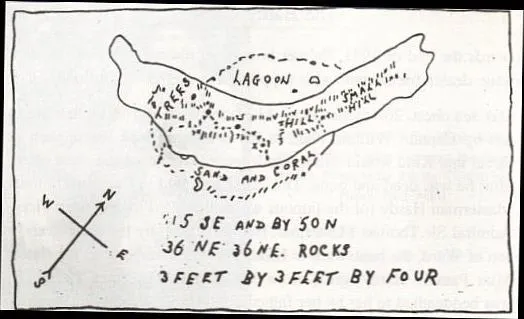 LAGOON
TREES
SMALL
HILL
SAND AND CORAL
W N
S E
15 SE AND BY 50 N
36 NE 36 NE. ROCKS
3 FEET BY 3 FEET BY FOUR